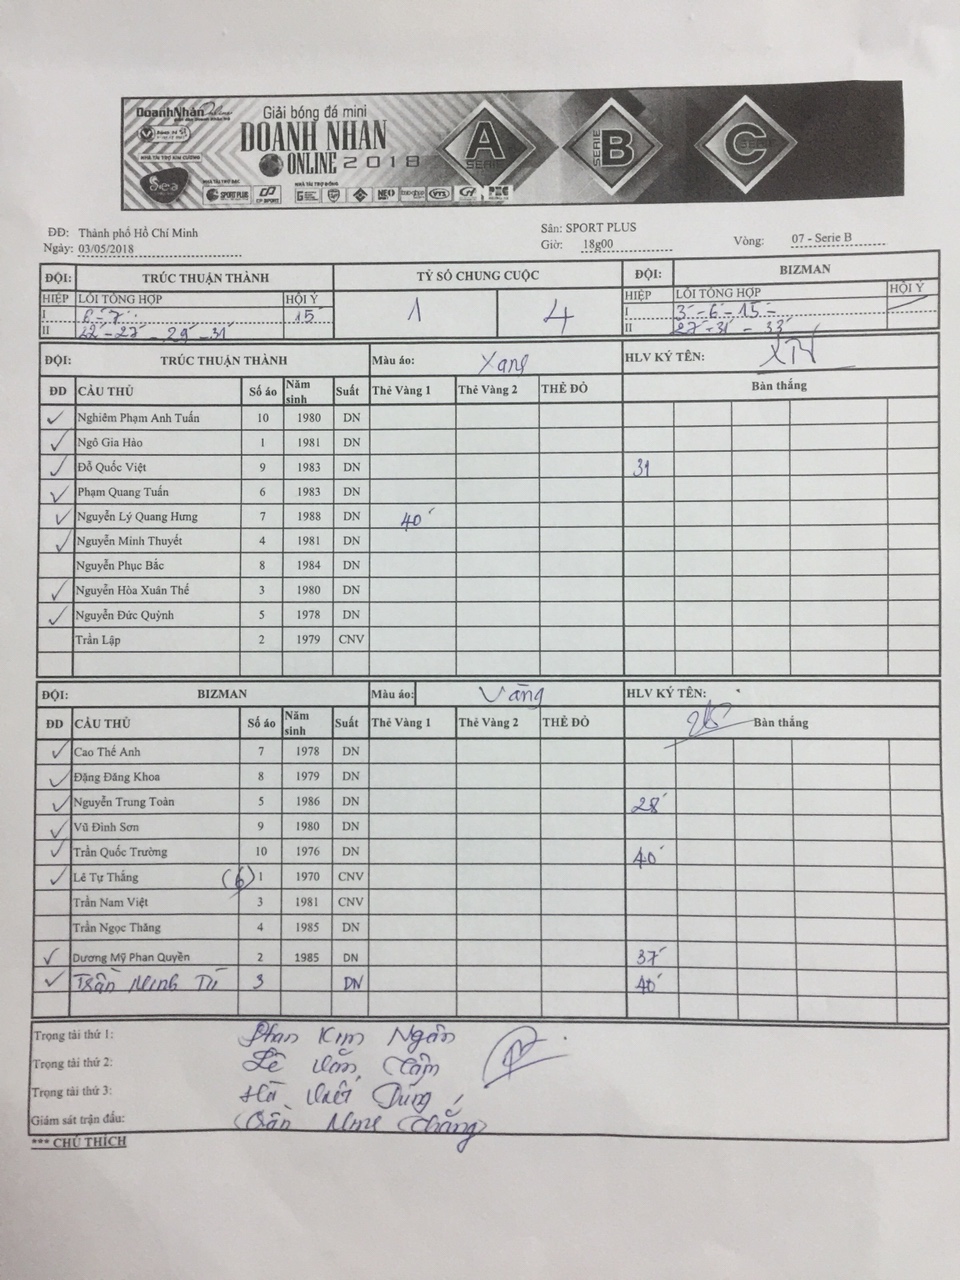 DoanhNhân Online
Giải bóng đá mini
DOANH NHAN
ONLINE 2018
NHÀ TÀI TRỢ KIM CƯƠNG
Sea
NHÀ TÀI TRỢ BẠC
NHÀ TÀI TRỢ ĐỒNG
SPORT PLUS
CP SPORT
NEO
A
SERIE
SERIE
B
C
SERIE
ĐĐ: Thành phố Hồ Chí Minh Sân: SPORT PLUS
Ngày: 03/05/2018 Giờ: 18g00 Vòng: 07 - Serie B
ĐỘI: TRÚC THUẬN THÀNH TỶ SỐ CHUNG CUỘC ĐỘI: BIZMAN
HIỆP LỖI TỔNG HỢP HỘI Ý 1 4 HIỆP LỖI TỔNG HỢP HỘI Ý
I 6'-7' 15' I 3'-6'-15'-
II 22'-27'-29'-31' II 27'-31'-33'
ĐỘI: TRÚC THUẬN THÀNH Màu áo: Xang HLV KÝ TÊN:
ĐD CẦU THỦ Số áo Năm sinh Suất Thẻ Vàng 1 Thẻ Vàng 2 THẺ ĐỎ Bàn thắng
✓ Nghiêm Phạm Anh Tuấn 10 1980 DN
✓ Ngô Gia Hào 1 1981 DN
✓ Đỗ Quốc Việt 9 1983 DN 31
✓ Phạm Quang Tuấn 6 1983 DN
✓ Nguyễn Lý Quang Hưng 7 1988 DN 40'
✓ Nguyễn Minh Thuyết 4 1981 DN
Nguyễn Phục Bắc 8 1984 DN
✓ Nguyễn Hòa Xuân Thế 3 1980 DN
✓ Nguyễn Đức Quỳnh 5 1978 DN
Trần Lập 2 1979 CNV
ĐỘI: BIZMAN Màu áo: Vàng HLV KÝ TÊN:
ĐD CẦU THỦ Số áo Năm sinh Suất Thẻ Vàng 1 Thẻ Vàng 2 THẺ ĐỎ Bàn thắng
✓ Cao Thế Anh 7 1978 DN
✓ Đặng Đăng Khoa 8 1979 DN
✓ Nguyễn Trung Toàn 5 1986 DN 28'
✓ Vũ Đình Sơn 9 1980 DN
✓ Trần Quốc Trường 10 1976 DN 40'
✓ Lê Tự Thắng (6) 1 1970 CNV
Trần Nam Việt 3 1981 CNV
Trần Ngọc Thăng 4 1985 DN
✓ Dương Mỹ Phan Quyền 2 1985 DN 37'
✓ Trần Minh Tú 3 DN 40'
Trọng tài thứ 1: Phan Kim Ngân
Trọng tài thứ 2: Lê Văn Tâm
Trọng tài thứ 3: Hà Viết Dũng
Giám sát trận đấu: Trần Thắng
*** CHÚ THÍCH